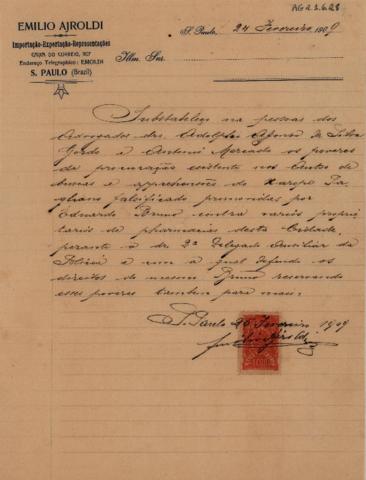 AG 2.3.6.28
EMILIO AJROLDI
Importação-Exportação-Representações
CAIXA DO CORREIO, 907
Endereço Telegraphico: EMOLDI
S. PAULO (Brazil)
S. Paulo, 24 Fevereiro 1909
Illm. Snr.
Substabeleço na pessoas dos
Advogados drs. Adolpho Afonso da Silva
Gordo e Antonio Mercado os poderes
da procuração existente nos Autos de
buscas e apprehensões do Xarope Pa-
gliano falsificado promovidas por
Eduardo Bruno contra varios propri
tarios de pharmacias desta Cidade,
perante o dr. 2º Delegado Auxiliar da
Policia e com a qual defendo os
direitos do mesmo Bruno reservando
esses poderes tambem para mim.
S. Paulo 26 Fevereiro 1909
Emilio Ajroldi